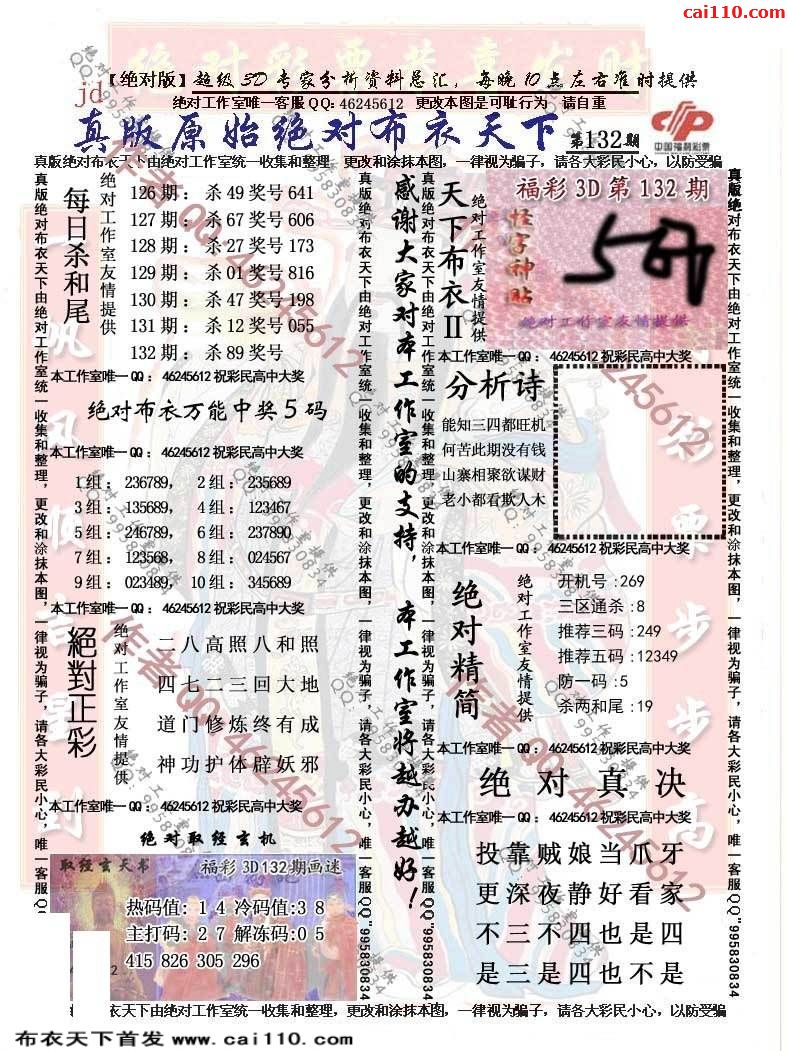 cai110.com
绝对彩票恭喜发财
【绝对版】超级3D专家分析资料总汇，每晚10点左右准时提供
jd
绝对工作室唯一客服QQ:46245612 更改本图是可耻行为 请自重
真版原始绝对布衣天下 第132期
中国福利彩票
真版绝对布衣天下由绝对工作室统一收集和整理，更改和涂抹本图，一律视为骗子，请各大彩民小心，以防受骗
每日杀和尾
绝对工作室友情提供
126期：杀49奖号641
127期：杀67奖号606
128期：杀27奖号173
129期：杀01奖号816
130期：杀47奖号198
131期：杀12奖号055
132期：杀89奖号
本工作室唯一QQ：46245612祝彩民高中大奖
绝对布衣万能中奖5码
本工作室唯一QQ：46245612祝彩民高中大奖
1组：236789，2组：235689
3组：135689，4组：123467
5组：246789，6组：237890
7组：123568，8组：024567
9组：023489，10组：345689
本工作室唯一QQ：46245612祝彩民高中大奖
絕對正彩
绝对工作室友情提供
二八高照八和照
四七二三回大地
道门修炼终有成
神功护体辟妖邪
本工作室唯一QQ：46245612祝彩民高中大奖
绝对取经玄机
取经玄天书 福彩3D132期画迷
热码值：14冷码值:38
主打码：27解冻码:05
415 826 305 296
感谢大家对本工作室的支持，本工作室将越办越好！
天下布衣II
绝对工作室友情提供
福彩3D第132期
怪字神贴
绝对工作室友情提供
本工作室唯一QQ：46245612祝彩民高中大奖
分析诗
能知三四都旺机
何苦此期没有钱
山寨相聚欲谋财
老小都看欺人木
本工作室唯一QQ：46245612祝彩民高中大奖
绝对精简
绝对工作室友情提供
开机号:269
三区通杀:8
推荐三码:249
推荐五码:12349
防一码:5
杀两和尾:19
本工作室唯一QQ：46245612祝彩民高中大奖
绝对真决
本工作室唯一QQ：46245612祝彩民高中大奖
投靠贼娘当爪牙
更深夜静好看家
不三不四也是四
是三是四也不是
真版绝对布衣天下由绝对工作室统一收集和整理，更改和涂抹本图，一律视为骗子，请各大彩民小心，唯一客服QQ"995830834
作者QQ:46245612
绝对工作室提供
QQ:995830834
衣天下由绝对工作室统一收集和整理，更改和涂抹本图，一律视为骗子，请各大彩民小心，以防受骗
布衣天下首发 www.cai110.com